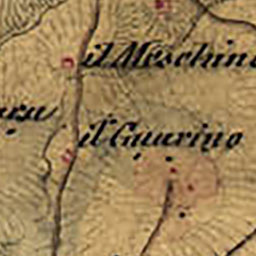 il Meschino
il Guerino